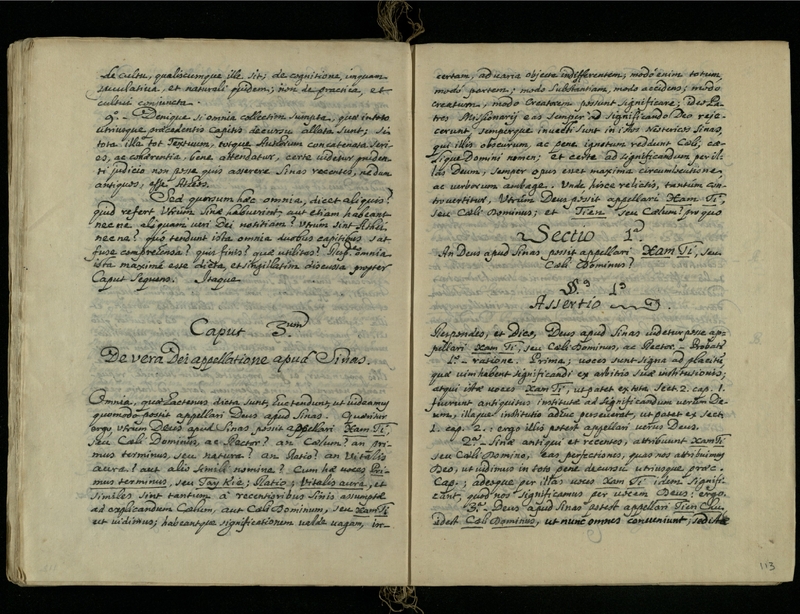 de cultu, qualiscumque ille sit; de cognitione, inquam
speculativa, et naturali quidem; non de practica, et
cultui coniuncta.
9.º Denique si omnia collectim sumpta, quæ in toto
utriusque præcedentis Capitis decursu allata sunt; si
tota illa tot Textuum, totque Authorum concatenata seri-
es, ac cohærentia bene attendatur, certe videtur pruden-
ti judicio non posse quis asserere Sinas recentes, nedum
antiquos, esse Atheos.
Sed quorsum hæc omnia, dicet aliquis?
quid refert utrum Sinæ habuerint, aut etiam habeant
nec ne aliquam veri Dei notitiam? Utrum sint Athei
nec ne? quo tendunt ista omnia duobus capitibus sat
fuse comprehensa? quis finis? quæ utilitas? Resp. omnia
ista maxime esse dicta, et singillatim discussa propter
Caput sequens. Itaque
Caput 3.um
De vera Dei appellatione apud Sinas.
Omnia, quæ hactenus dicta sunt, huc tendunt, ut videamus
quomodo possit appellari Deus apud Sinas. Quæritur
ergo utrum Deus apud Sinas possit appellari Xam Ti,
seu Cæli Dominus, ac Rector? an Cælum? an pri-
mus terminus, seu natura? an Ratio? an Vitalis
aura? aut alio simili nomine? Cum hæ voces Pri-
mus terminus, seu Tay Kie; Ratio; Vitalis aura, et
similes sint tantum a recentioribus Sinis assumptæ
ad explicandum Cælum, aut Cæli Dominum, seu Xam Ti
ut vidimus; habeantque significationem valde vagam, in-
certam, ad varia objecta indifferentem, modo enim totum,
modo partem; modo substantiam, modo accidens; modo
creaturam, modo Creatorem possint significare; Ideo Pa-
tres Missionarii eas semper ad significandum Deo reje-
cerunt, semperque invecti sunt in hos Neotericos Sinas,
qui illis obscurum, ac pene ignotum reddunt Cæli, Cæ-
lique Domini nomen; et certe ad significandum per il-
las Deum, semper opus esset maxima circumlocutione,
ac verborum ambage. Unde hisce relictis, tantum con-
trovertitur, Utrum Deus possit appellari Xam Ti,
seu Cæli Dominus; et Tien seu Cælum? pro quo
Sectio 1.ª
An Deus apud Sinas possit appellari Xam Ti, seu
Cæli Dominus?
§.º 1.º
Assertio
Respondeo, et Dico, Deus apud Sinas videtur posse ap-
pellari Xam Ti, seu Cæli Dominus, ac Rector. Probatur
1.º ratione. Prima; voces sunt signa ad placitum
quæ vim habent significandi ex arbitrio suæ institutionis;
atqui istæ voces Xam Ti, ut patet ex tota Sect. 2. cap. 1.
fuerunt antiquitus institutæ ad significandum verum De-
um, illaque institutio adhuc perseverat, ut patet ex Sect.
1. cap. 2.; ergo illis potest appellari verus Deus.
2.º Sinæ antiqui et recentes, attribuunt Xam Ti
seu Cæli Domino, eas perfectiones, quas nos attribuimus
Deo, ut vidimus in toto pene decursu utriusque præc.
Cap.; adeoque per illas voces Xam Ti idem signifi-
cant, quod nos significamus per vocem Deus; ergo.
3.º Deus apud Sinas potest appellari Tien Chu
idest Cæli Dominus, ut nunc omnes conveniunt; sed istæ
113